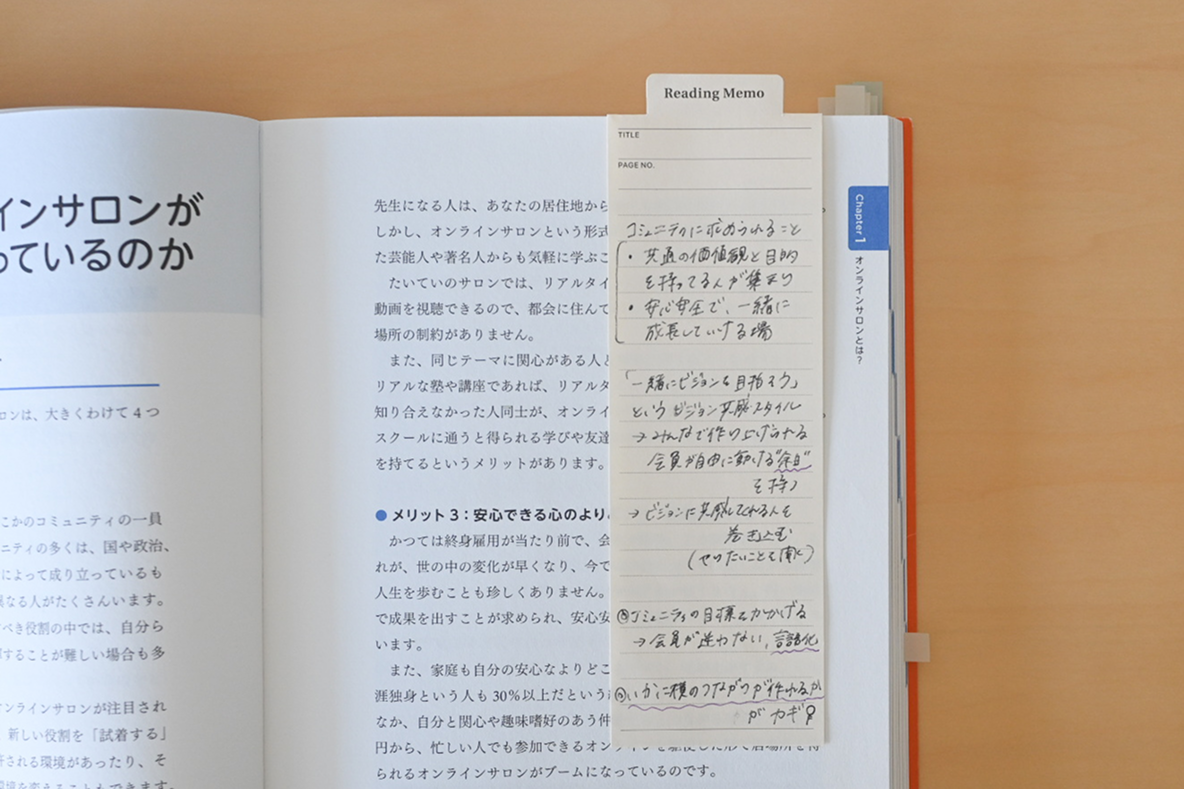 インサロンが
っているのか
ロンは、大きくわけて4つ
こかのコミュニティの一員
ニティの多くは、国や政治、
によって成り立っているも
異なる人がたくさんいます。
べき役割の中では、自分ら
することが難しい場合も多
ンラインサロンが注目され
新しい役割を「試着する」
許される環境があったり、そ
先生になる人は、あなたの居住地から
しかし、オンラインサロンという形式
た芸能人や著名人からも気軽に学ぶこ
たいていのサロンでは、リアルタイ
動画を視聴できるので、都会に住んで
場所の制約がありません。
また、同じテーマに関心がある人と
リアルな塾や講座であれば、リアルタ
知り合えなかった人同士が、オンライ
スクールに通うと得られる学びや友達
を持てるというメリットがあります。
●メリット3：安心できる心のより
かつては終身雇用が当たり前で、会
れが、世の中の変化が早くなり、今で
人生を歩むことも珍しくありません。
で成果を出すことが求められ、安心安
います。
また、家庭も自分の安心なよりどこ
涯独身という人も30％以上だという
なか、自分と関心や趣味嗜好のあう仲
円から、忙しい人でも参加できるオン
られるオンラインサロンがブームになっているのです。
Reading Memo
TITLE
PAGE NO.
コミュニティに求められること
・共通の価値観と目的
を持ってる人が集まり
・安心安全で、一緒に
成長していける場
「一緒にビジョンを目指そう」
というビジョン共感スタイル
→みんなで作り上げられる
会員が自由に動ける"余白"
を持つ
→ビジョンに共感してくれる人を
巻き込む
(やりたいことを聞く)
コミュニティの目標をかかげる
→会員が迷わない、言語化
いかに横のつながりが作れるか
がカギ
Chapter 1
オンラインサロンとは？